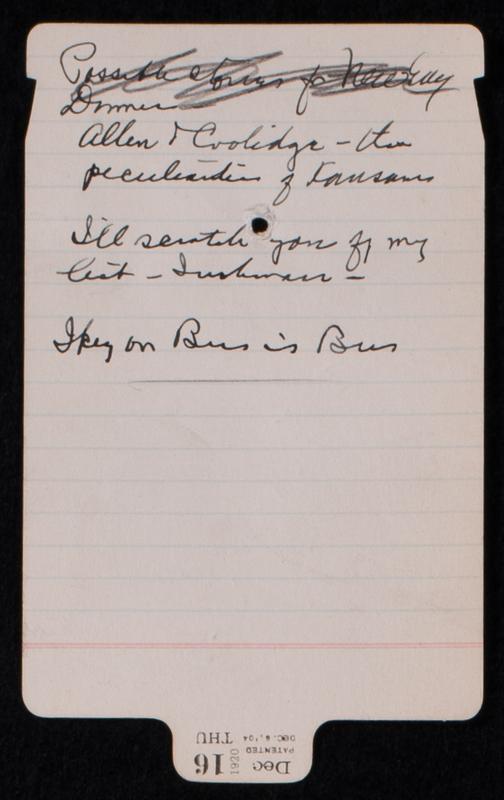 Possible stories for Newsday
Dinner
Allen & Coolidge - the
peculiarities of Kansans
I'll scratch you off my
list - Irishman -
Ikey on Bus is Bus
Dec 16 1920 THU
PATENTED
DEC. 6, '04